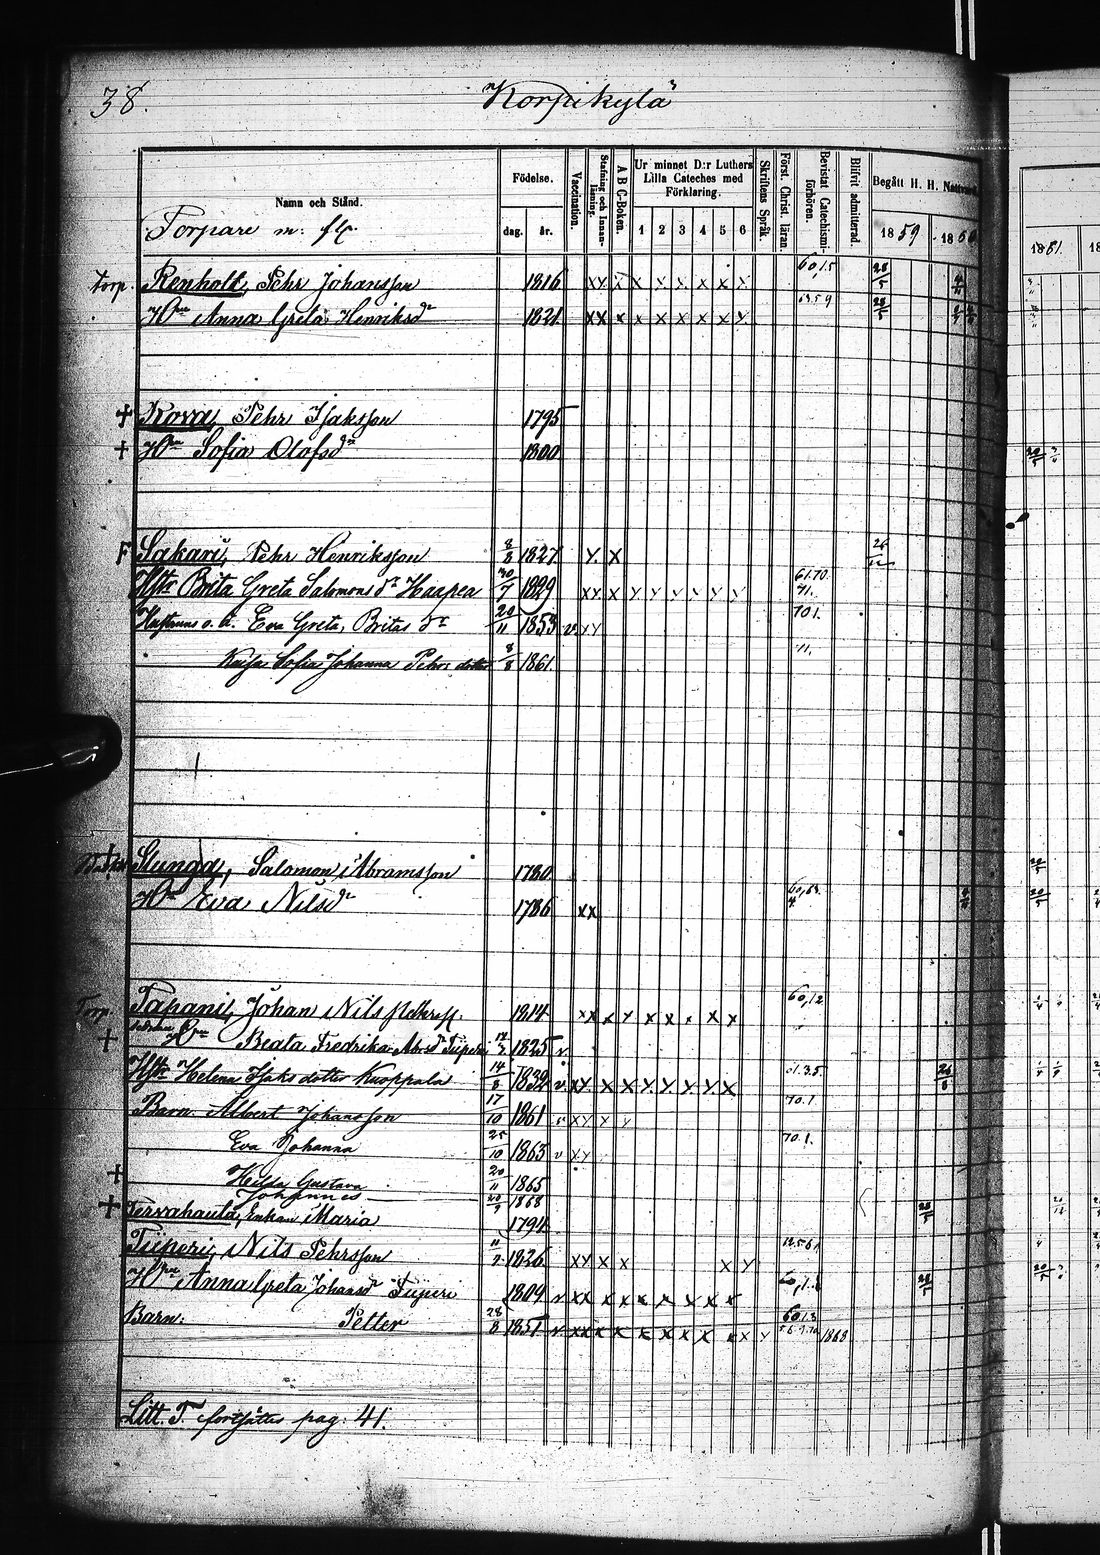 38.
"Korpikylä"
Namn och Stånd.
Födelse.
dag. år.
Vaccination.
Stafning och Innanläsning.
A B C-Boken.
Ur minnet D:r Luthers Lilla Cateches med Förklaring.
1 2 3 4 5 6
Skriftens Språk.
Först. Christ. läran.
Bevistat Catechismiförhören.
Blifvit admitterad
Begått H. H. Nattvard
1859 1860
1861.
Torpare m. fl.
Torp. Renholt, Pehr Johansson 1816 x x x x x x x x x 60,15
Hu Anna Greta Henriksdr 1821 x x x x x x x x x
+ Kova, Pehr Isaksson 1795
+ Hu Sofia Olofsdr 1800
F Sakari, Pehr Henriksson 8/8 1827 x x
Hstr Brita Greta Salomonsdr Haapea 30/7 1829 x x x x x x x x x 61.70. 71.
Hustruns o. ä. Eva Greta, Britas dr 20/11 1853 v x x 70 1.
Kaisa Sofia Johanna Pehrs dotter 8/8 1861 71.
Slunga, Salomon Abramsson 1780
Hu Eva Nilsdr 1786 x x
Torp. Tapani, Johan Nils 1814 x x x x x x x x 60,12
+ Hu Beata Fredrika Abrdr Tiiperi 1825 v.
Hstr Helena Isaks dotter Kuoppala 14/8 1832 v x x x x x x x x x 61.3.5
Barn. Albert Johansson 17/10 1861 x x x x 70.1
Eva Johanna 25/10 1863 v x x 70.1.
+ Hilda Gustava 20/11 1865
Johannes 1868
+ Tervahauta, Enkan Maria 1794
Tiiperi, Nils Pehrsson 1826 x x x x x x
Hu Anna Greta Johansdr Tiiperi 1809 v x x x x x x x x x
Barn: Petter 28/8 1851 v. x x x x x x x x x x x 60.1.3 1868
Litt. T. fortsättes pag: 41.